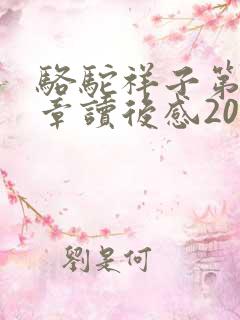 駱駝祥子第
章讀後感20
劉是何